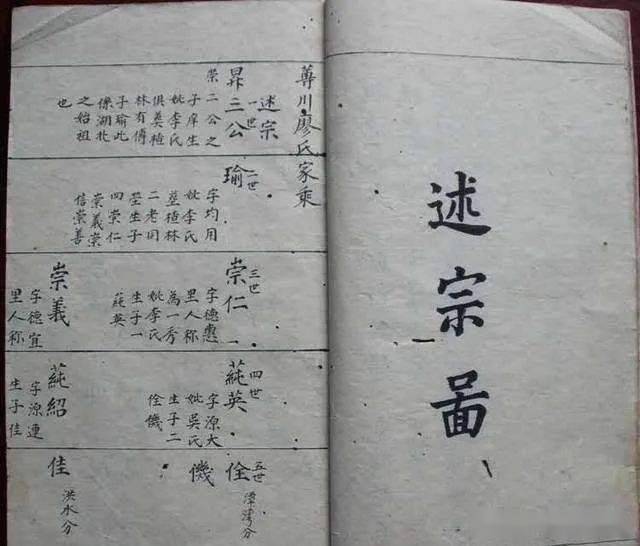 述宗啚
蓴川廖氏家乘
述宗
一世
昇三公
榮二公之
子庠生
妣李氏
俱葵植
林有傳
子瑜此
係湖北
之始祖
也
二世
瑜
字均用
妣李氏
塟植林
二老同
塋生子
四崇仁
崇義崇
信崇善
三世
崇仁
字德惠
里人称
為一秀
妣李氏
生子一
蒓英
崇義
字德宜
里人称
四世
蒓英
字源大
妣吳氏
生子二
佺儀
蒓紹
字源連
生子佳
五世
佺
潭灣分
佳
洪水分